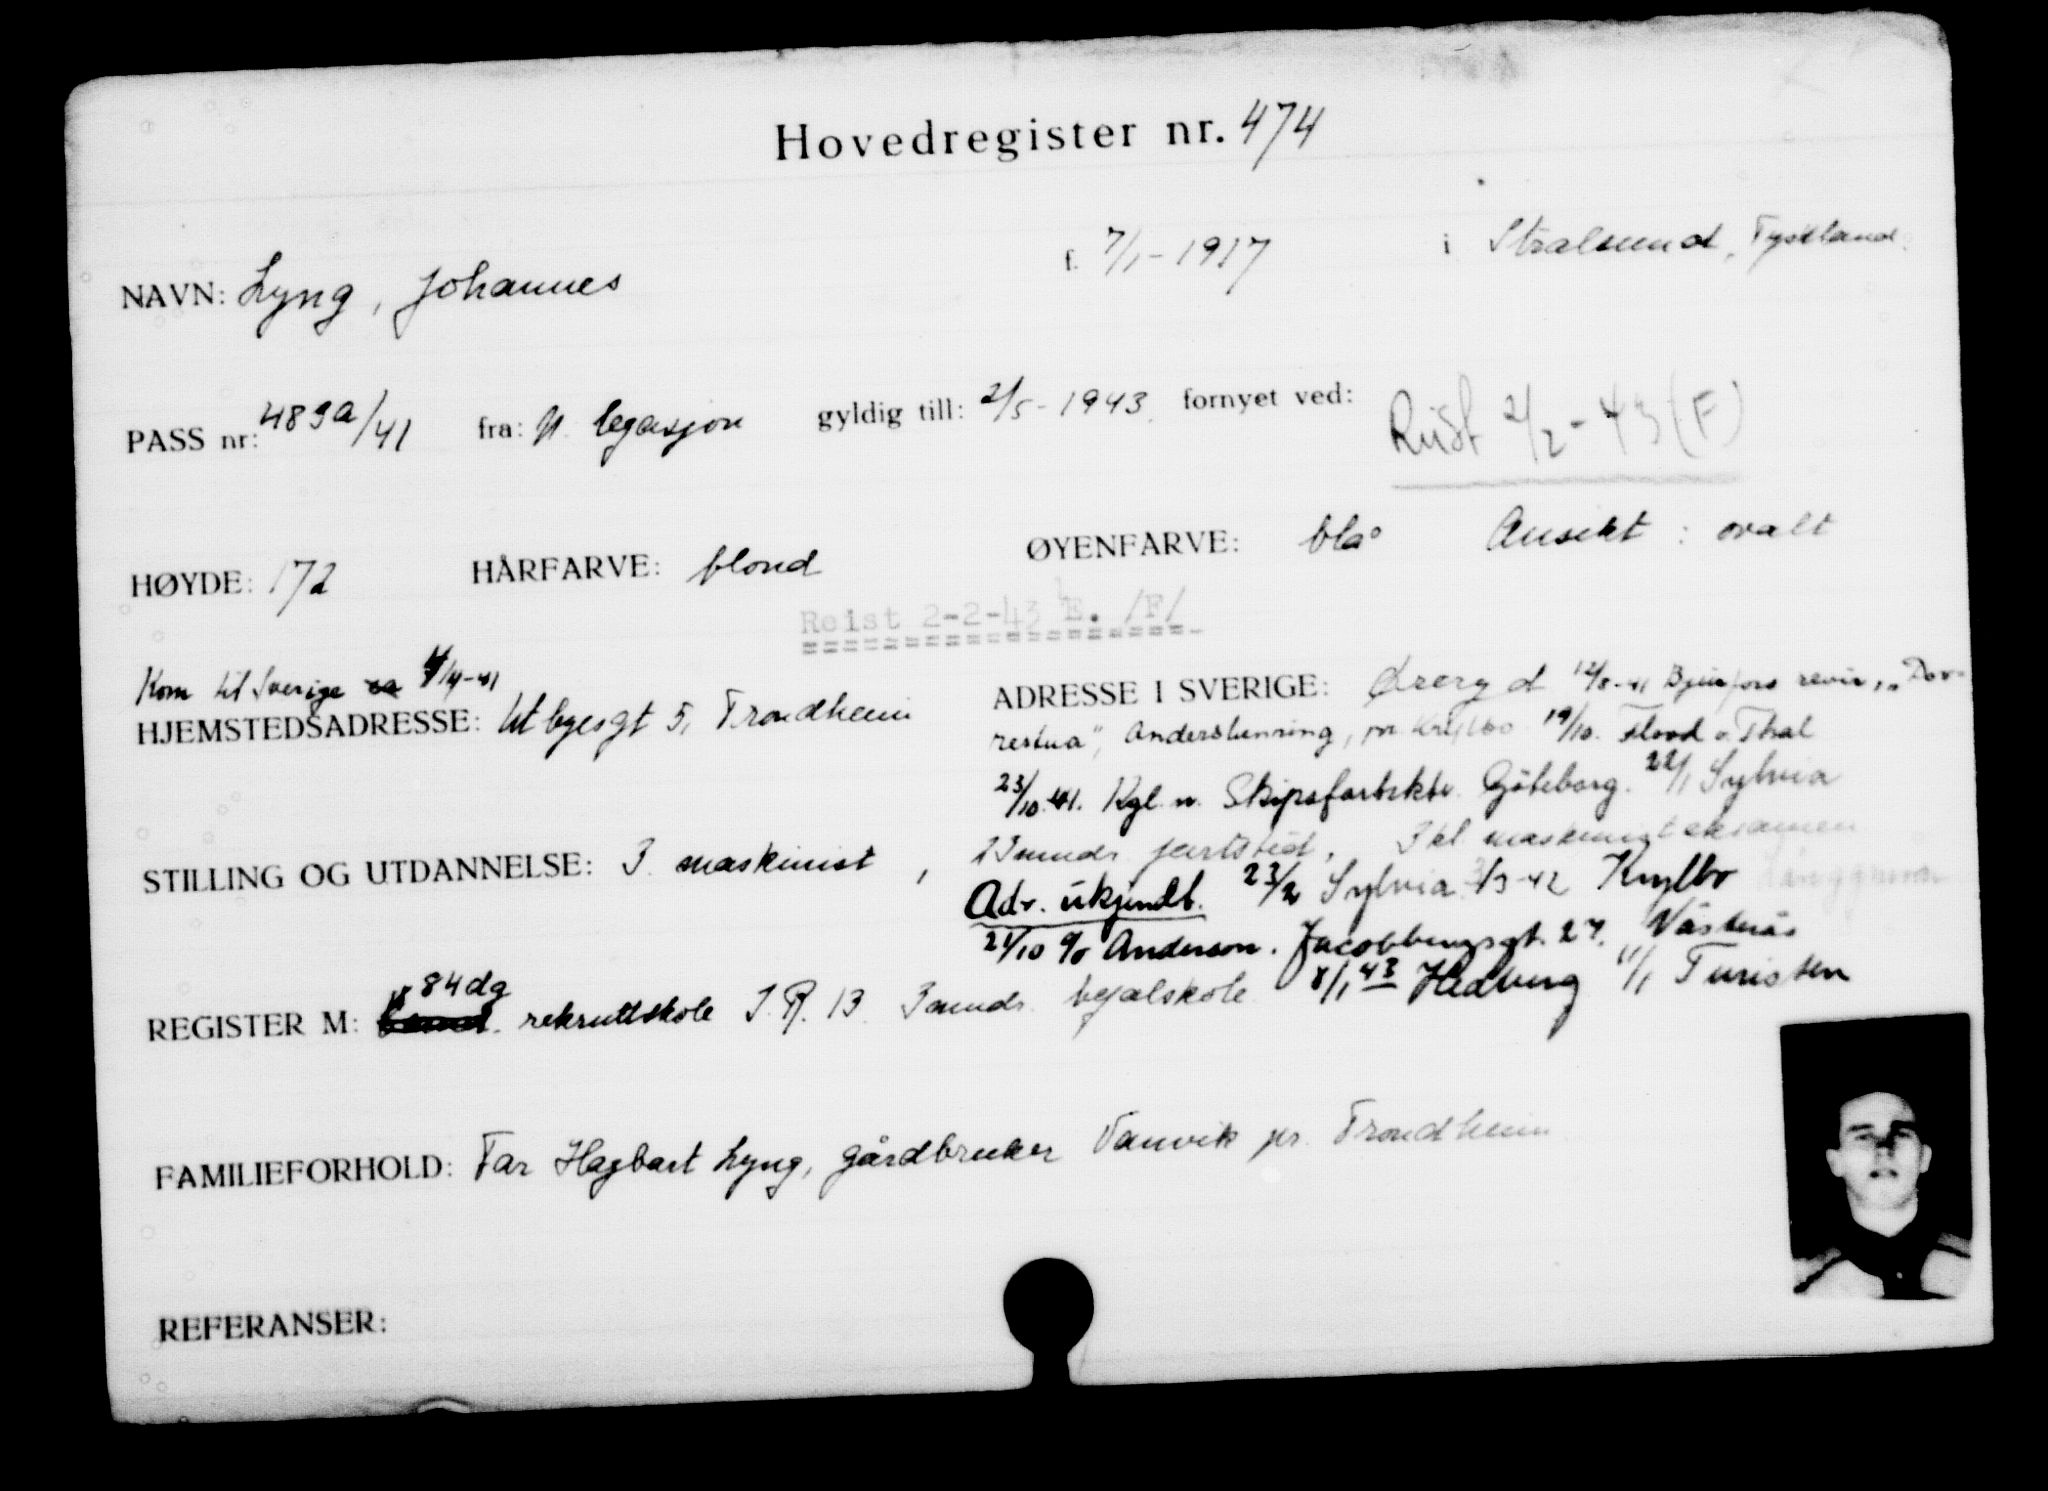 Hovedregister nr. 474
NAVN: Lyng, Johannes f. 7/1-1917 i Stralsund, Tyskland.
PASS nr: 489a/41 fra: N. legasjon gyldig till: 2/5-1943. fornyet ved:
Reist 2/2-43 (F)
HØYDE: 172 HÅRFARVE: blond ØYENFARVE: blå Ansikt: ovalt
Reist 2-2-43 E. /F/
Kom til Sverige 4/4-41
HJEMSTEDSADRESSE: Utbyesgt 5, Trondheim
ADRESSE I SVERIGE: Øreryd 12/8-41 Bjurfors revir, "Dor-
restua", Andersbenning, pr. Krylbo 19/10. Flood o. Thal
23/10.41. Kgl. n. Skipsfartsktr. Göteborg. 22/1 Sylvia
STILLING OG UTDANNELSE: 3. maskinist, 23 mndr. fartstid, 3 kl. maskinisteksamen
Adr. ukjendt. 23/2 Sylvia 3/3-42 Krylbo
21/10 c/o Anderson. Jacobbergsgt. 27. Västerås
REGISTER M: 84 dg rekruttskole I.R. 13 3 mndr. befalskole 8/1 43 Hedberg 11/1 Turisten
FAMILIEFORHOLD: Far Hagbart Lyng, gårdbruker Vanvik pr. Trondheim
REFERANSER: